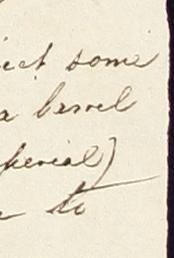 ict some
a barrel
perial)
to